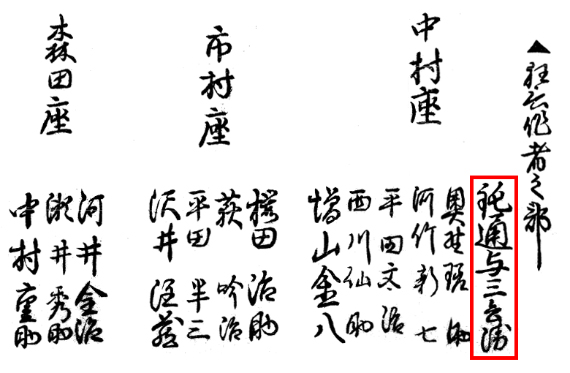 ▲狂言作者之部
中村座
鈍通与三兵衛
奥野瑳助
河竹新七
平田文治
西川仙助
増山金八
市村座
櫻田 治助
荻 吟治
平田 半三
沢井
森田座
河井 金治
瀬井 秀助
中村 重助